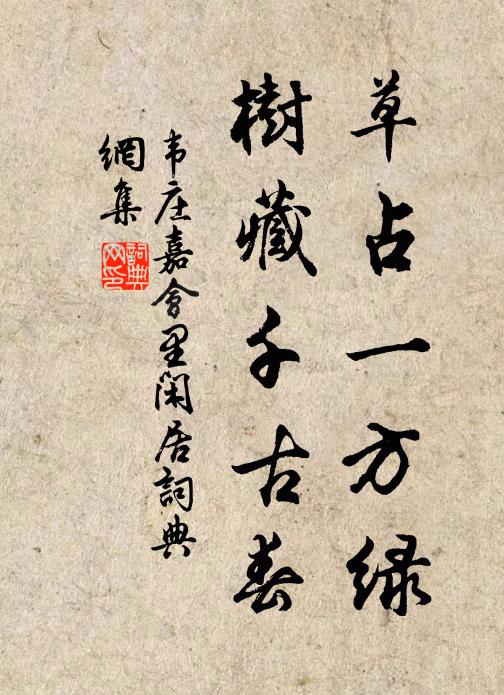 草占一方绿
樹藏千古春
韦庄嘉會里閑居詞典
網集
詞典
网印